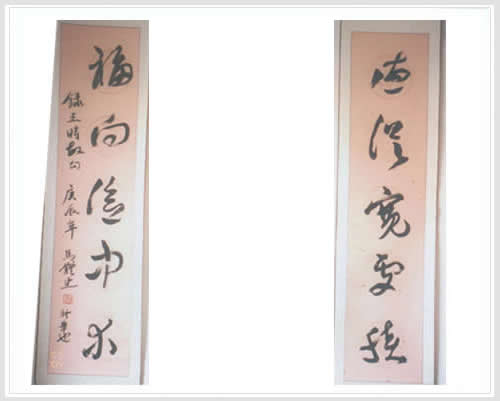 德從寬處積
福向儉中求
錄王時敏句 庚辰年